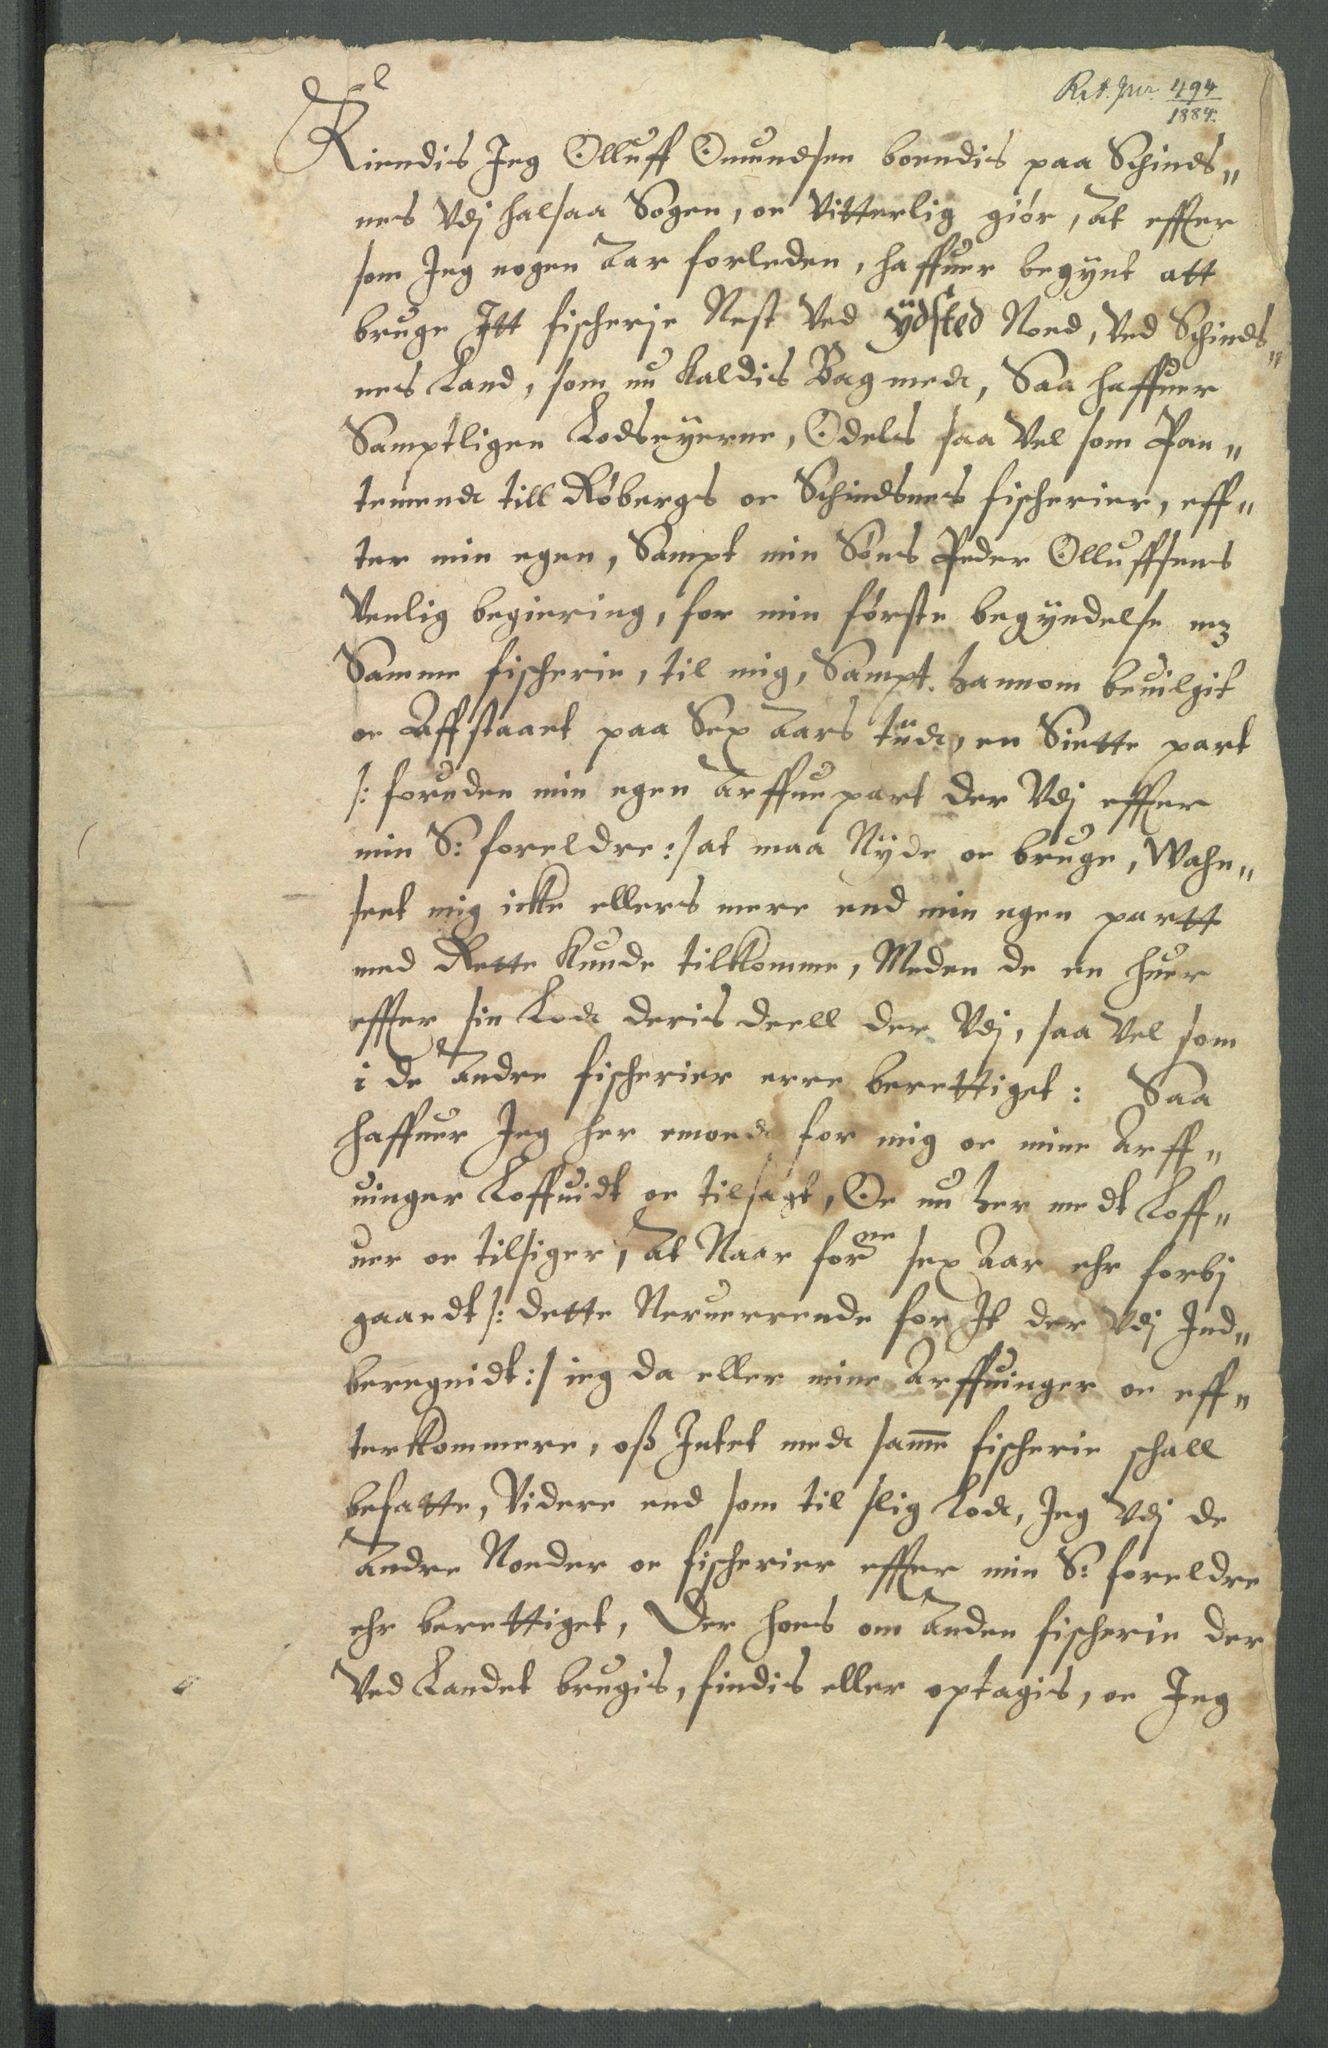 Rit. Jur. 494
1884.
Kiendis Jeg Olluff Omundsen boendis paa Schinds„
nes Vdj halsaa Sogen, oc Vitterlig giör, At effter
som Jeg nogen Aar forleden, haffuer begynt att
bruge Jtt fischerje Nest Ved ÿdsted Noed, Ved Schinds„
nes Land, som nu Kaldis Bag medt, Saa haffuer
Samptligen Lodseyerne, Odels saa Vel som Pan„
temend till Röbergs oc Schindsnes fischerier, eff„
ter min egen, Sampt min Söns Peder Olluffsens
Venlig begiering, for min förste begyndelse mz
Samme fischerie, til mig, Sampt hannom beuilgit
oc Affstaaet paa Sex Aars tiidt, en Siette part
/: foruden min egen Arffuepart der Vdj effter
min S: foreldre :/ at maa Nyde oc bruge, Wahn„
seet mig icke ellers mere end min egen partt
med Rette Kunde tilkomme, Meden de en huer
effter sin Lod deris deell der Vdj, saa Vel som
i de Andre fischerier erre berettiget: Saa
haffuer Jeg her emod for mig oc mine Arff„
uinger Loffuidt oc tilsagt, Oc nu her medt Loff„
uer oc tilsiger, At Naar forne sex Aar ehr forbj
gaaedt /: dette Neruerrende for Jt der Vdj Ind„
beregnidt :/ ieg da eller mine Arffuinger oc eff„
terkommere, oss Intet med samme fischerie schall
befatte, Videre end som til slig Lod, Jeg Vdj de
Andre Noeder oc fischerier effter min S: foreldre
ehr berettiget, Der hoes om Anden fischerie der
Ved Landet brugis, findis eller optagis, oc Jeg